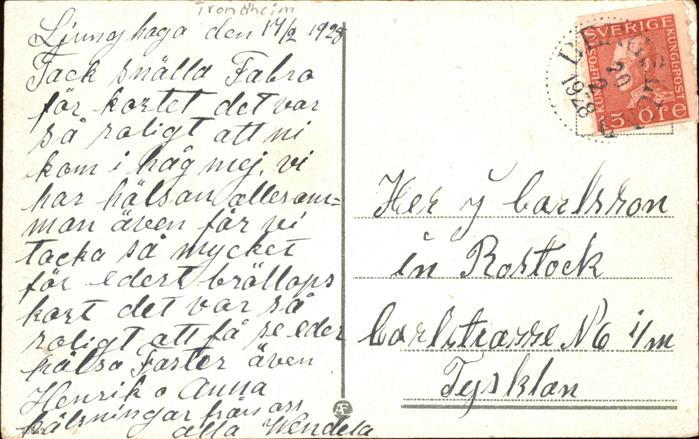 Trondheim
Ljunghaga den 17/2 1928
Tack snälla Fabro
för kortet det var
så roligt att ni
kom i håg mej, vi
har hälsan allesam=
man även får vi
tacka så mycket
för edert bröllops
kort det var så
roligt att få se eder
hälsa Faster även
Henrik o Anna
hälsningar från oss
alla Wendela
SVERIGE
KUNGL·POST
KUNGL·POST
15 ÖRE
20
2
1928
Her J Carlsson
in Rostock
Carlstrasse N6 i/m
Tysklan